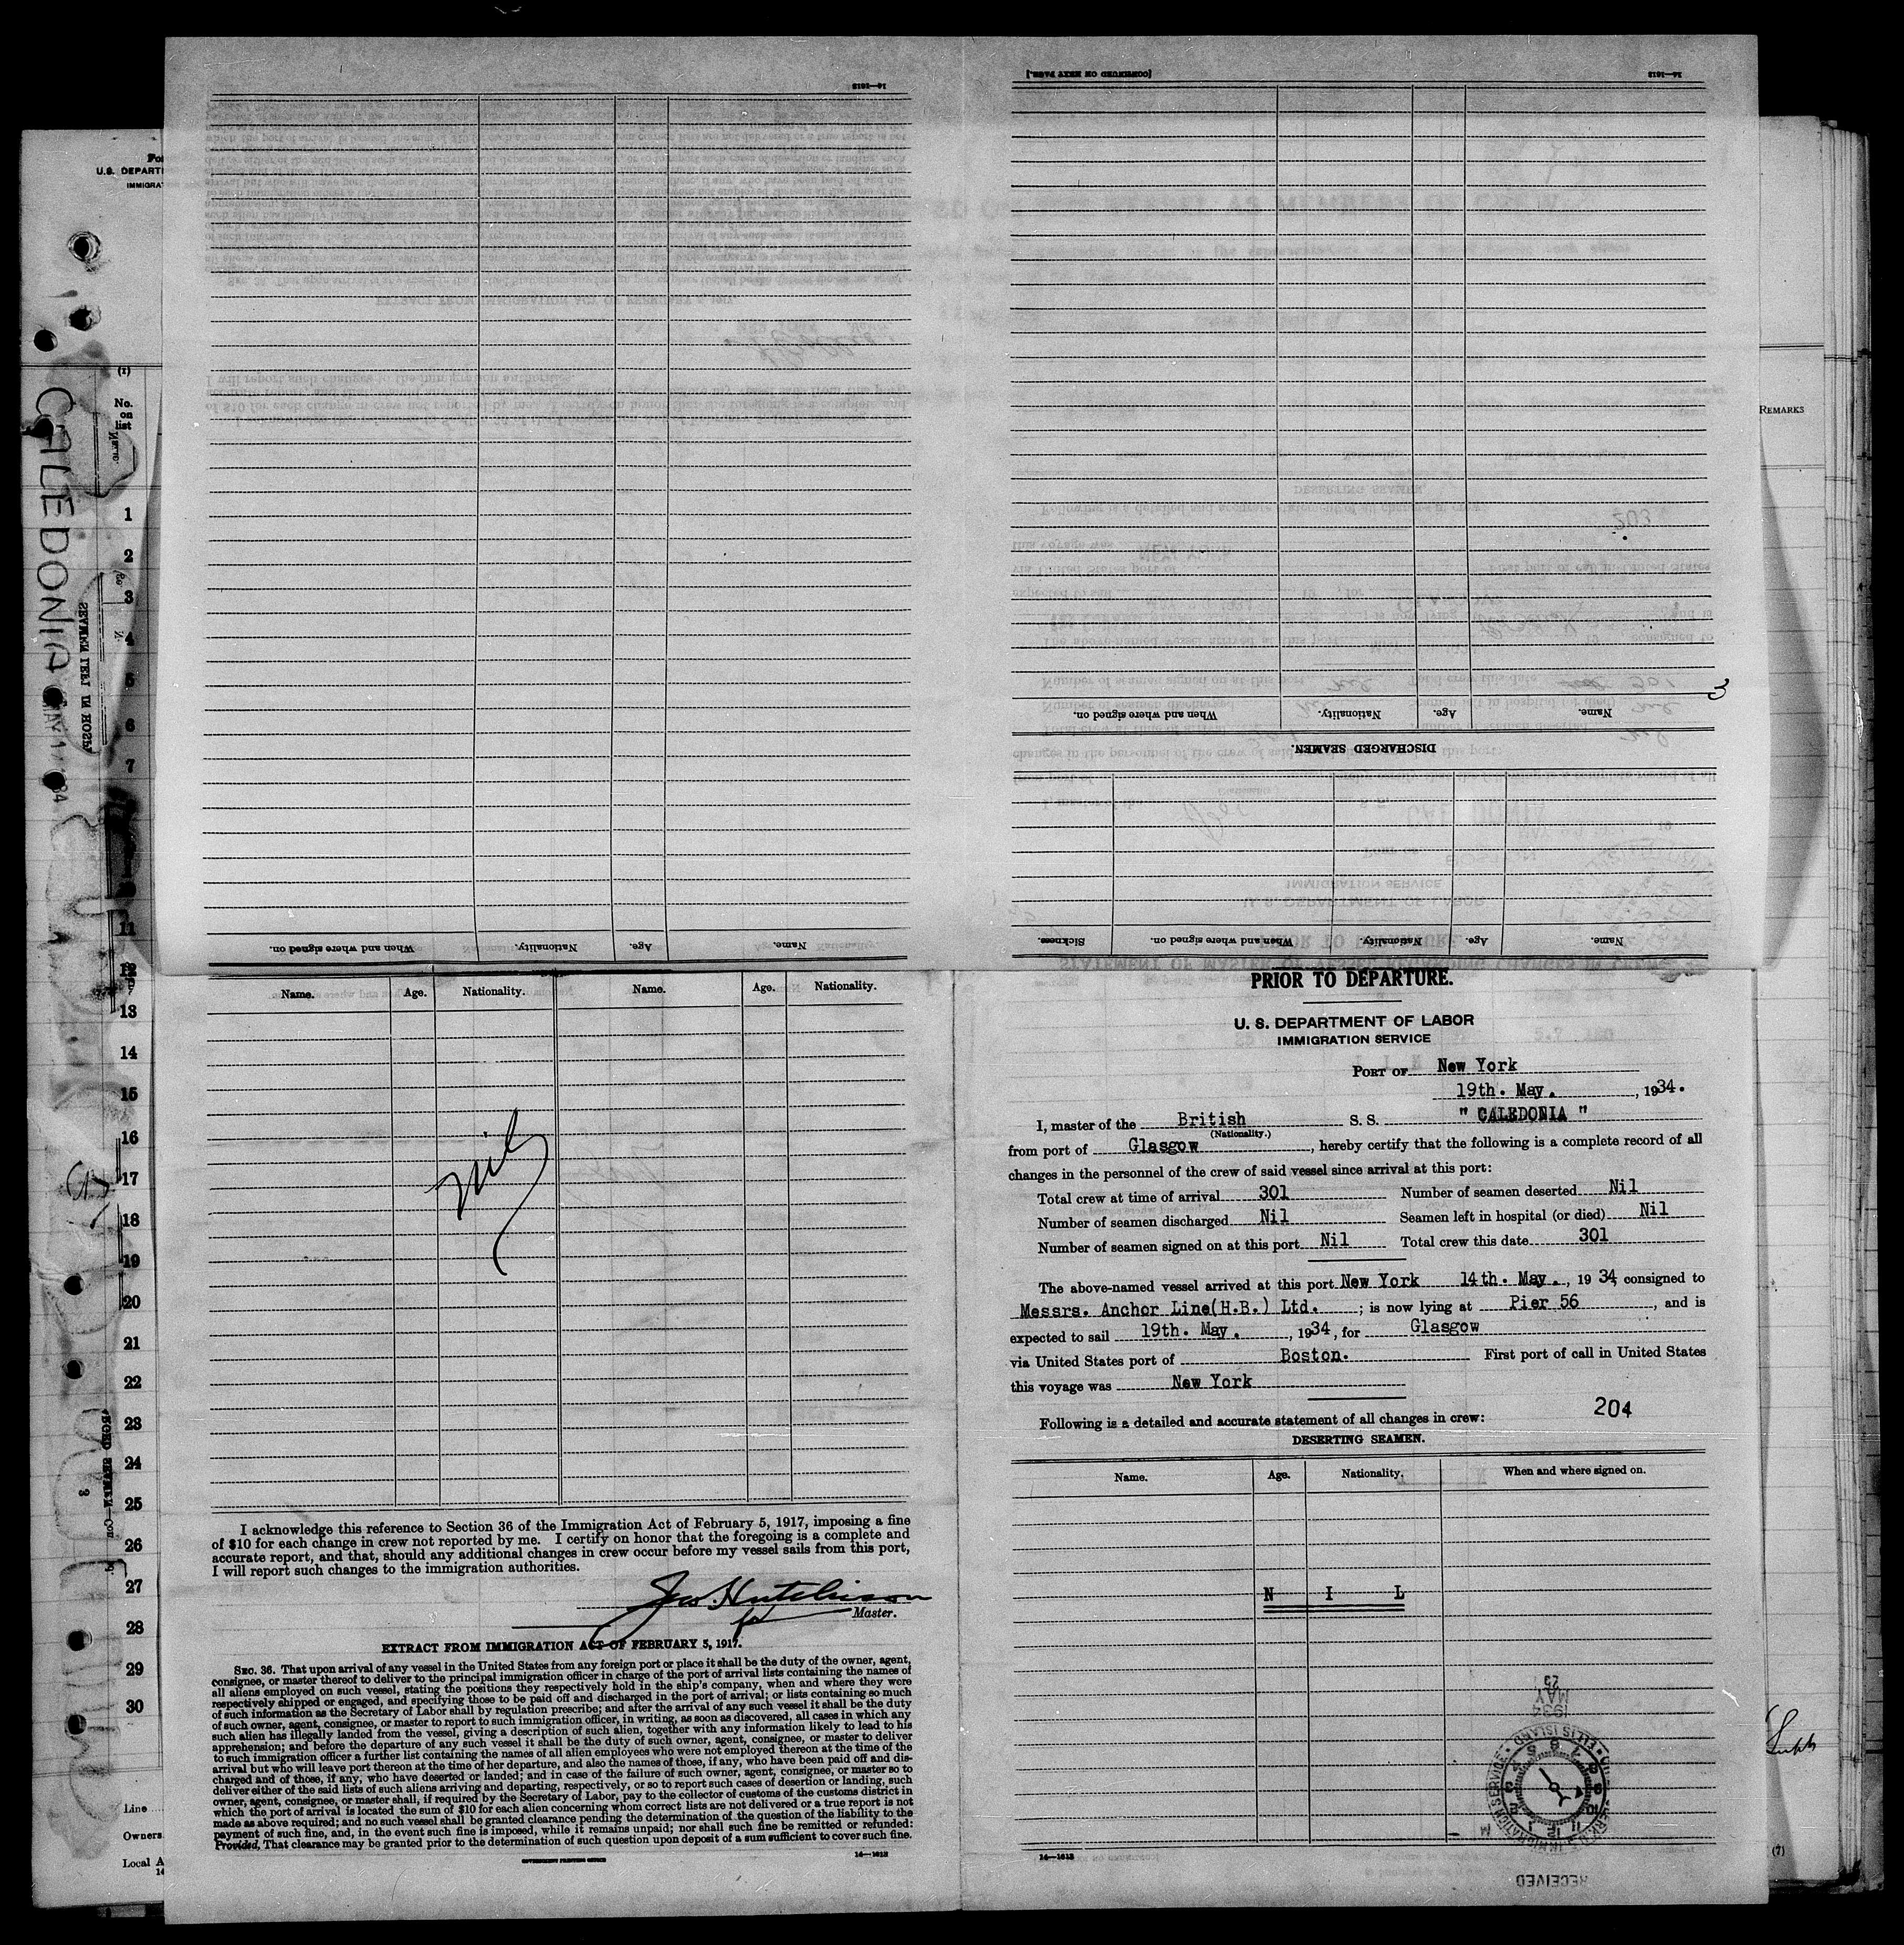 [CONTINUED ON NEXT PAGE.]
14—1612
14—1612
REMARKS
U.S. DEPARTM
IMMIGRAT
(1)
No.
on
list
CALEDONIA
SEAMEN LEFT IN HOSP
1
2
3
4
5
6
7
11
12
13
14
15
16
17
18
19
20
21
22
23
24
25
26
27
28
29
30
Line
Owners
Local A
14
Name. Age. Nationality. When and where signed on.
DISCHARGED SEAMEN.
3
203
Name. Age. Nationality. When and where signed on. Sickness.
Name. Age. Nationality. When and where signed on.
Name. Age. Nationality. Name. Age. Nationality.
Nil
I acknowledge this reference to Section 36 of the Immigration Act of February 5, 1917, imposing a fine
of $10 for each change in crew not reported by me. I certify on honor that the foregoing is a complete and
accurate report, and that, should any additional changes in crew occur before my vessel sails from this port,
I will report such changes to the immigration authorities.
Jno. Hutchison
for Master.
EXTRACT FROM IMMIGRATION ACT OF FEBRUARY 5, 1917.
SEC. 36. That upon arrival of any vessel in the United States from any foreign port or place it shall be the duty of the owner, agent,
consignee, or master thereof to deliver to the principal immigration officer in charge of the port of arrival lists containing the names of
all aliens employed on such vessel, stating the positions they respectively hold in the ship's company, when and where they were
respectively shipped or engaged, and specifying those to be paid off and discharged in the port of arrival; or lists containing so much
of such information as the Secretary of Labor shall by regulation prescribe; and after the arrival of any such vessel it shall be the duty
of such owner, agent, consignee, or master to report to such immigration officer, in writing, as soon as discovered, all cases in which any
such alien has illegally landed from the vessel, giving a description of such alien, together with any information likely to lead to his
apprehension; and before the departure of any such vessel it shall be the duty of such owner, agent, consignee, or master to deliver
to such immigration officer a further list containing the names of all alien employees who were not employed thereon at the time of the
arrival but who will leave port thereon at the time of her departure, and also the names of those, if any, who have been paid off and dis-
charged and of those, if any, who have deserted or landed; and in case of the failure of such owner, agent, consignee, or master so to
deliver either of the said lists of such aliens arriving and departing, respectively, or so to report such cases of desertion or landing, such
owner, agent, consignee, or master shall, if required by the Secretary of Labor, pay to the collector of customs of the customs district in
which the port of arrival is located the sum of $10 for each alien concerning whom correct lists are not delivered or a true report is not
made as above required; and no such vessel shall be granted clearance pending the determination of the question of the liability to the
payment of such fine, and, in the event such fine is imposed, while it remains unpaid; nor shall such fine be remitted or refunded:
Provided, That clearance may be granted prior to the determination of such question upon deposit of a sum sufficient to cover such fine.
GOVERNMENT PRINTING OFFICE 14—1612
PRIOR TO DEPARTURE.
U. S. DEPARTMENT OF LABOR
IMMIGRATION SERVICE
PORT OF New York
19th. May. , 1934.
I, master of the British S. S. " CALEDONIA "
(Nationality.)
from port of Glasgow , hereby certify that the following is a complete record of all
changes in the personnel of the crew of said vessel since arrival at this port:
Total crew at time of arrival 301 Number of seamen deserted Nil
Number of seamen discharged Nil Seamen left in hospital (or died) Nil
Number of seamen signed on at this port Nil Total crew this date 301
The above-named vessel arrived at this port New York 14th. May. , 1934, consigned to
Messrs. Anchor Line(H.B.) Ltd. ; is now lying at Pier 56 , and is
expected to sail 19th. May. , 1934, for Glasgow
via United States port of Boston. First port of call in United States
this voyage was New York
Following is a detailed and accurate statement of all changes in crew: 204
DESERTING SEAMEN.
Name. Age. Nationality. When and where signed on.
N I L
14—1612
1934
MAY
23
ELLIS ISLAND
IMMIGRATION SERVICE
RECEIVED
(7)